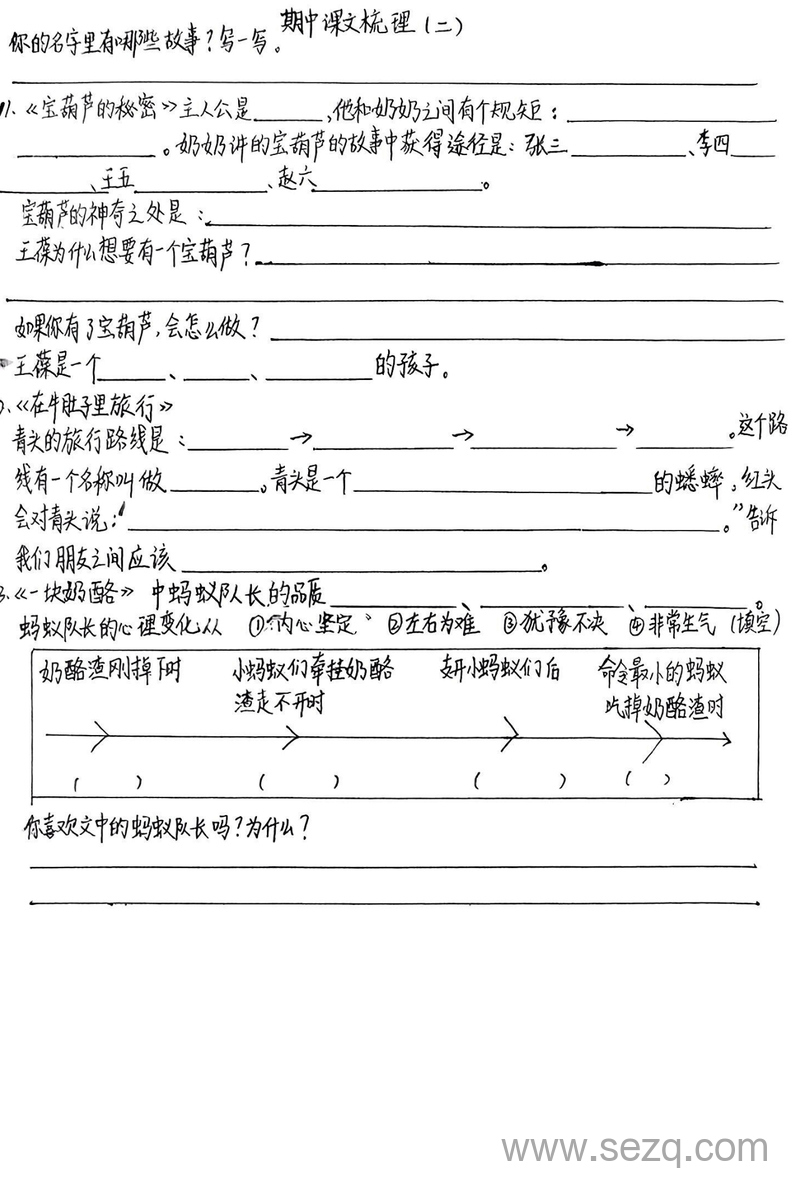 期中课文梳理（二）
你的名字里有哪些故事？写一写。
11.《宝葫芦的秘密》主人公是______,他和奶奶之间有个规矩：______
______。奶奶讲的宝葫芦的故事中获得途径是：张三______、李四______
______、王五______、赵六______。
宝葫芦的神奇之处是：______
王葆为什么想要有一个宝葫芦？______
如果你有了宝葫芦,会怎么做？______
王葆是一个______、______、______的孩子。
《在牛肚子里旅行》
青头的旅行路线是：______→______→______→______。这个路
线有一个名称叫做______。青头是一个______的蟋蟀,红头
会对青头说：“______。”告诉
我们朋友之间应该______。
3.《一块奶酪》中蚂蚁队长的品质______、______、______。
蚂蚁队长的心理变化从 ①内心坚定 ②左右为难 ③犹豫不决 ④非常生气（填空）
奶酪渣刚掉下时 小蚂蚁们牵挂奶酪渣走不开时 支开小蚂蚁们后 命令最小的蚂蚁吃掉奶酪渣时
（ ） （ ） （ ） （ ）
你喜欢文中的蚂蚁队长吗？为什么？
www.sezq.com